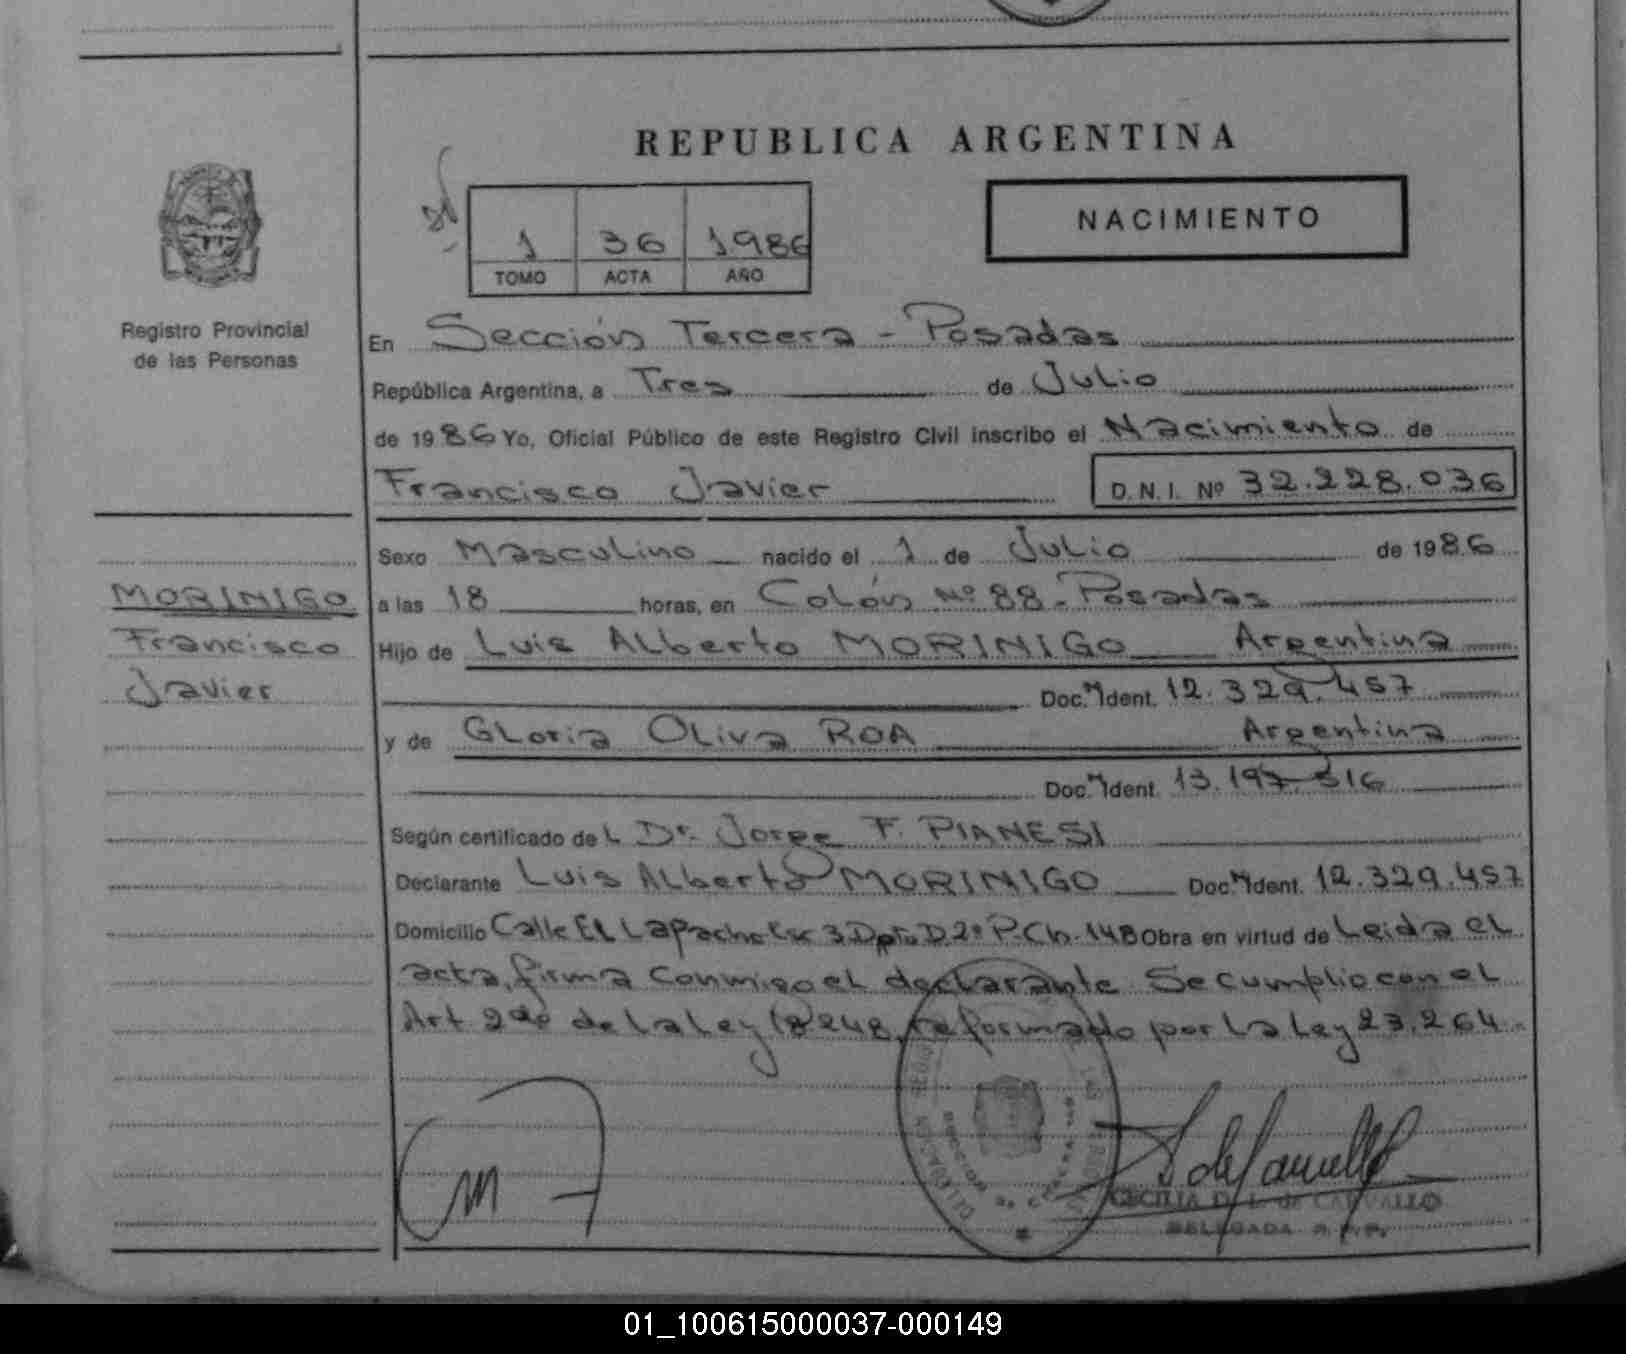 REPUBLICA ARGENTINA
NACIMIENTO
1 36 1986
TOMO ACTA AÑO
Registro Provincial
de las Personas
En Sección Tercera - Posadas
República Argentina, a Tres de Julio
de 1986 Yo, Oficial Público de este Registro Civil inscribo el Nacimiento de
Francisco Javier D.N.I. Nº 32.228.036
Sexo Masculino nacido el 1 de Julio de 1986
MORINIGO
Francisco
Javier
a las 18 horas, en Colón Nº 88 - Posadas
Hijo de Luis Alberto MORINIGO Argentina
Doc. M Ident. 12.329.457
y de Gloria Oliva ROA Argentina
Doc. M Ident. 13.197.516
Según certificado del Dr. Jorge F. PIANESI
Declarante Luis Alberto MORINIGO Doc. M Ident. 12.329.457
Domicilio Calle El Lapacho 3 Dpto D 2º P. Ch. 148 Obra en virtud de Leida el
acta, firma conmigo el declarante Se cumplio con el
Art 2do de la Ley 18248, reformado por la Ley 23.264
CECILIA D. L. de CARVALLO
DELEGADA R.P.P.
01_100615000037-000149